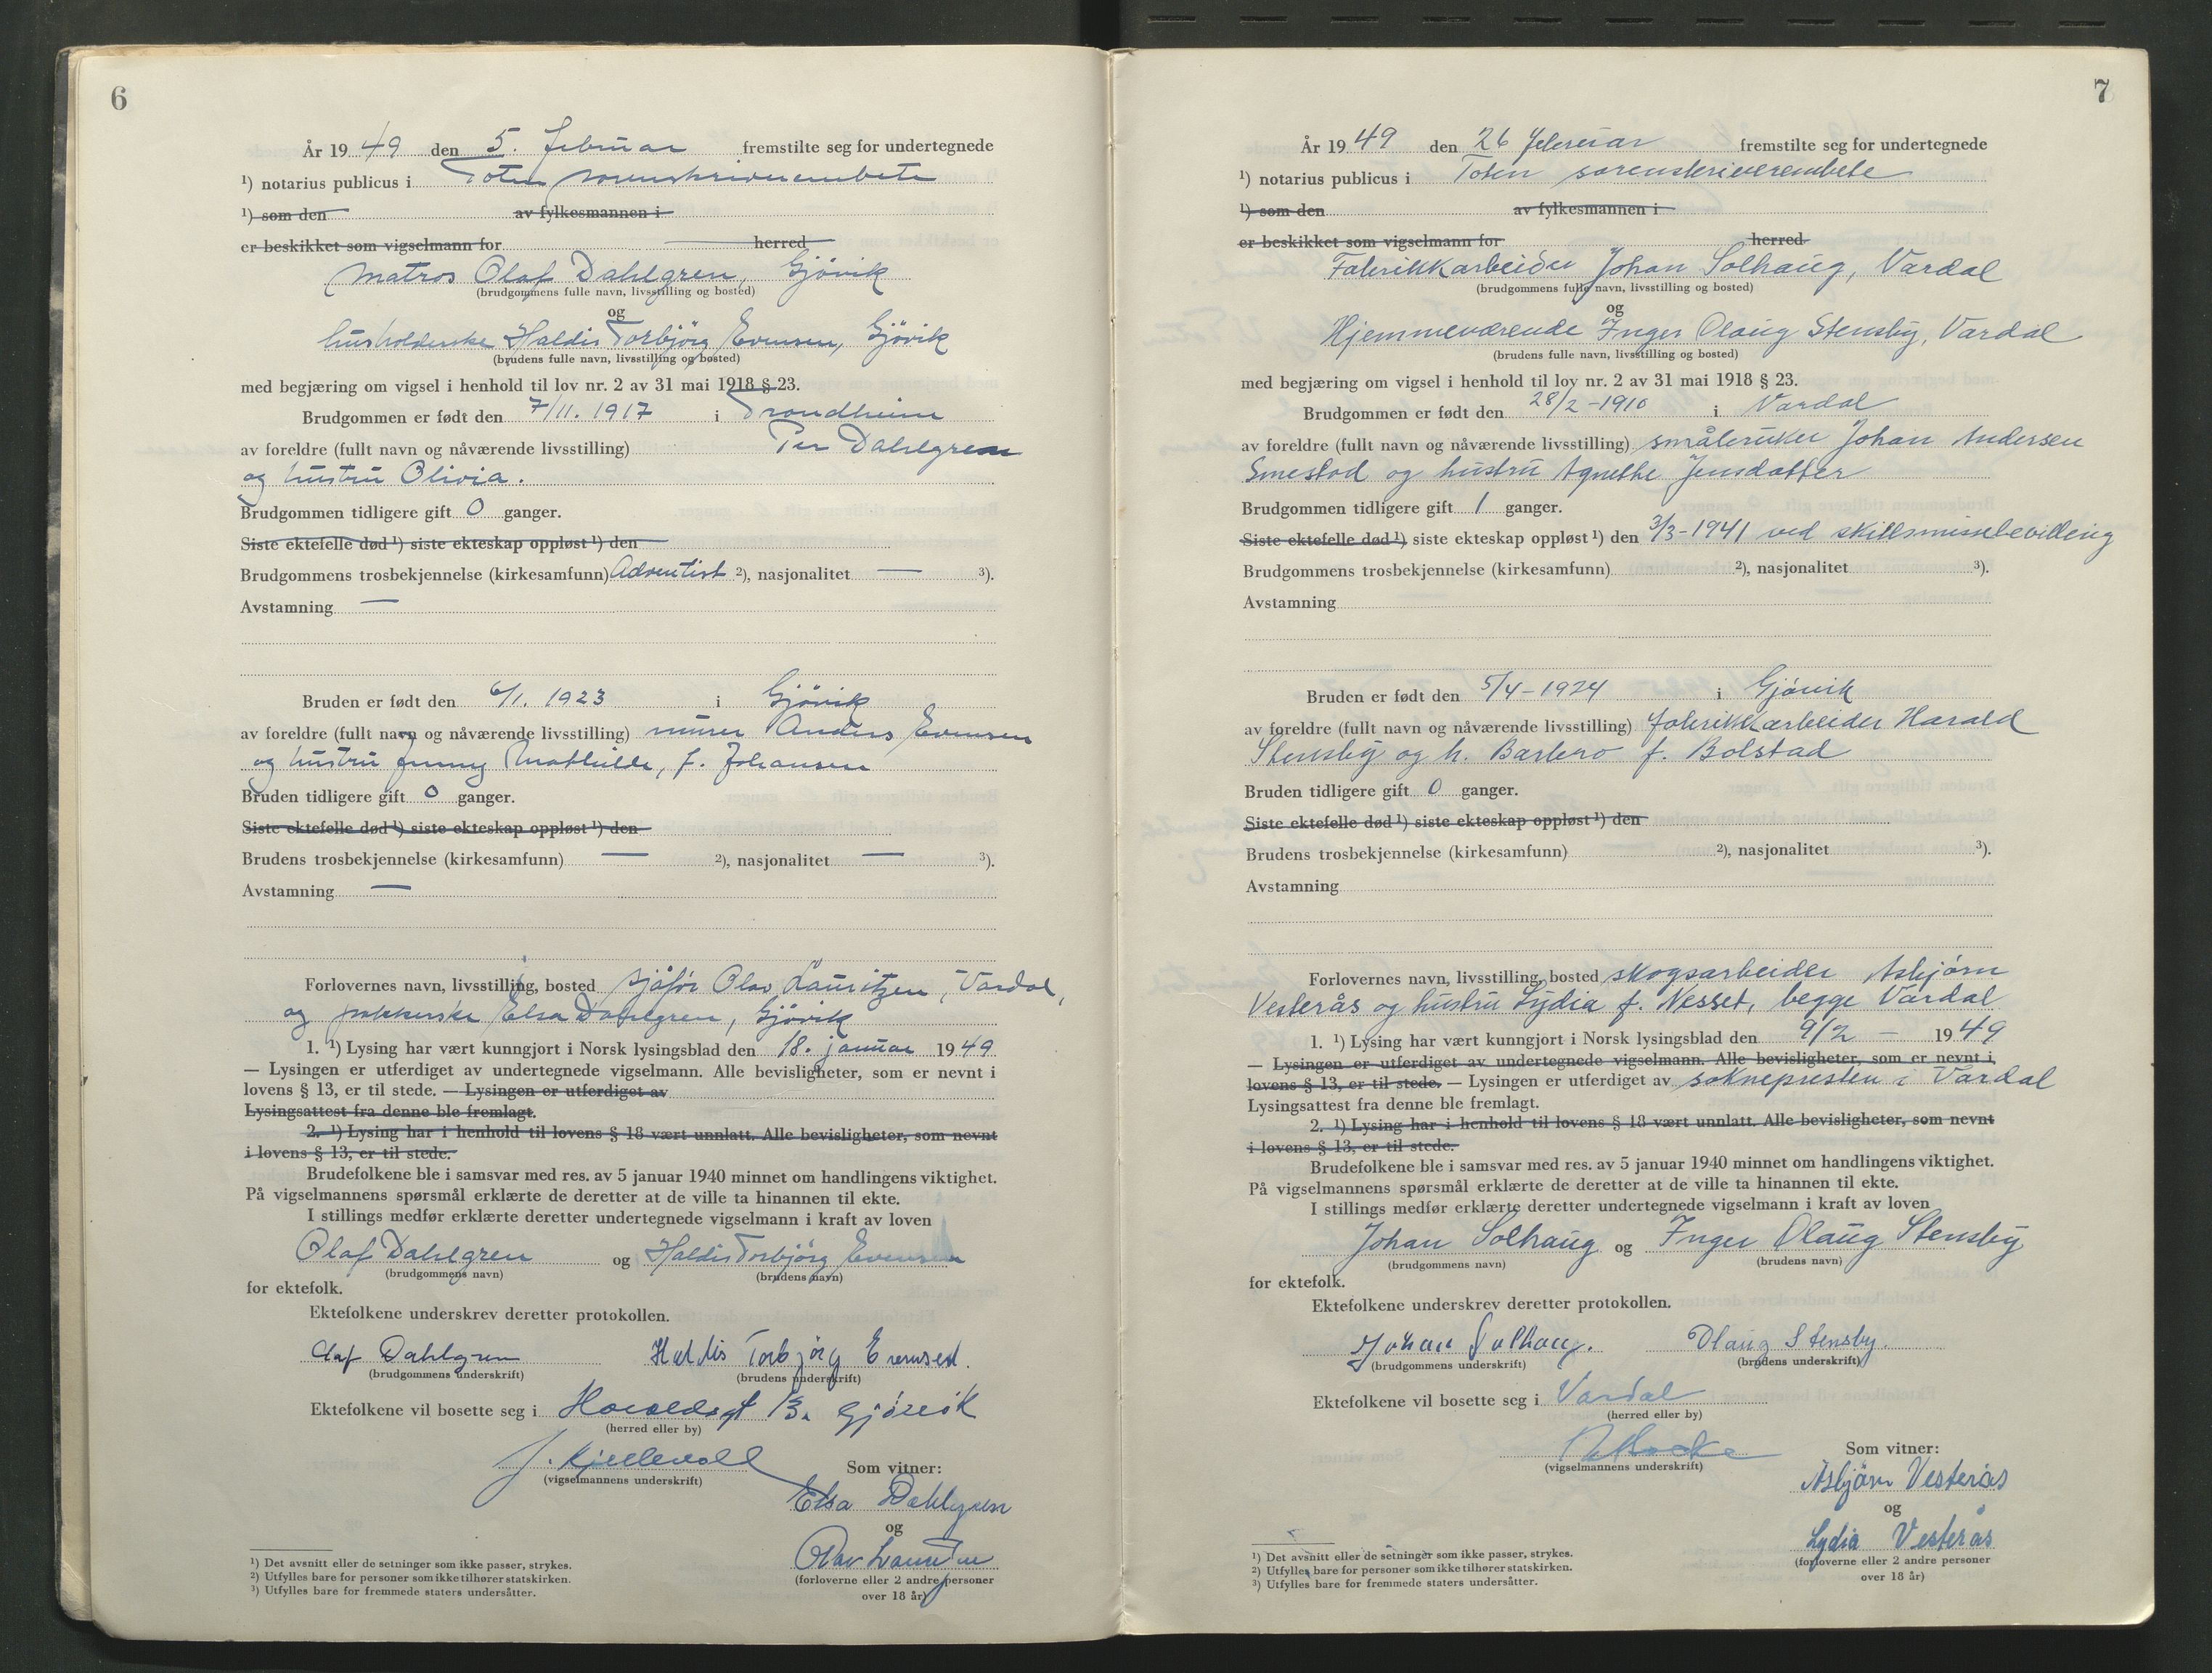 6
År 19 49 den 5. februar fremstilte seg for undertegnede
¹) notarius publicus i Toten sorenskriverembete
¹) som den av fylkesmannen i
er beskikket som vigselmann for herred
Matros Olaf Dahlgren, Gjövik
(brudgommens fulle navn, livsstilling og bosted)
og
husholderske Haldis Torbjörg Evensen, Gjövik
(brudens fulle navn, livsstilling og bosted)
med begjæring om vigsel i henhold til lov nr. 2 av 31 mai 1918 § 23.
Brudgommen er født den 7/11. 1917 i Trondheim
av foreldre (fullt navn og nåværende livsstilling) Per Dahlgren
og hustru Olivia.
Brudgommen tidligere gift 0 ganger.
Siste ektefelle død ¹) siste ekteskap oppløst ¹) den
Brudgommens trosbekjennelse (kirkesamfunn) Adventist ²), nasjonalitet — ³).
Avstamning —
Bruden er født den 6/1. 1923 i Gjövik
av foreldre (fullt navn og nåværende livsstilling) murer Anders Evensen
og hustru Jenny Mathilde, f. Johansen
Bruden tidligere gift 0 ganger.
Siste ektefelle død ¹) siste ekteskap oppløst ¹) den
Brudens trosbekjennelse (kirkesamfunn) — ²), nasjonalitet — ³).
Avstamning —
Forlovernes navn, livsstilling, bosted sjåför Olav Lauritzen, Vardal,
og Elsa Dahlgren, Gjövik
1. ¹) Lysing har vært kunngjort i Norsk lysingsblad den 18. januar 19 49
— Lysingen er utferdiget av undertegnede vigselmann. Alle bevisligheter, som er nevnt i
lovens § 13, er til stede. — Lysingen er utferdiget av
Lysingsattest fra denne ble fremlagt.
2. ¹) Lysing har i henhold til lovens § 18 vært unnlatt. Alle bevisligheter, som nevnt
i lovens § 13, er til stede.
Brudefolkene ble i samsvar med res. av 5 januar 1940 minnet om handlingens viktighet.
På vigselmannens spørsmål erklærte de deretter at de ville ta hinannen til ekte.
I stillings medfør erklærte deretter undertegnede vigselmann i kraft av loven
Olaf Dahlgren og Haldis Torbjörg Evensen
(brudgommens navn) (brudens navn)
for ektefolk.
Ektefolkene underskrev deretter protokollen.
Olaf Dahlgren Haldis Torbjörg Evensen.
(brudgommens underskrift) (brudens underskrift)
Ektefolkene vil bosette seg i Haraldsgt 13. Gjövik
(herred eller by)
J. Kjellevoll
(vigselmannens underskrift)
Som vitner:
Elsa Dahlgren
og
Olav Lauritzen
(forloverne eller 2 andre personer
over 18 år)
¹) Det avsnitt eller de setninger som ikke passer, strykes.
²) Utfylles bare for personer som ikke tilhører statskirken.
³) Utfylles bare for fremmede staters undersåtter.
7
År 19 49 den 26 februar fremstilte seg for undertegnede
¹) notarius publicus i Toten sorenskriverembete
¹) som den av fylkesmannen i
er beskikket som vigselmann for herred
Fabrikkarbeider Johan Solhaug, Vardal
(brudgommens fulle navn, livsstilling og bosted)
og
Hjemmeværende Inger Olaug Stensby, Vardal
(brudens fulle navn, livsstilling og bosted)
med begjæring om vigsel i henhold til lov nr. 2 av 31 mai 1918 § 23.
Brudgommen er født den 28/2-1910 i Vardal
av foreldre (fullt navn og nåværende livsstilling) småbruker Johan Andersen
Smestad og hustru Agnethe Jensdatter
Brudgommen tidligere gift 1 ganger.
Siste ektefelle død ¹) siste ekteskap oppløst ¹) den 3/3-1941 ved skillsmissebevilling
Brudgommens trosbekjennelse (kirkesamfunn) ²), nasjonalitet ³).
Avstamning
Bruden er født den 5/4-1924 i Gjövik
av foreldre (fullt navn og nåværende livsstilling) fabrikkarbeider Harald
Stensby og h. Barbro f. Bolstad
Bruden tidligere gift 0 ganger.
Siste ektefelle død ¹) siste ekteskap oppløst ¹) den
Brudens trosbekjennelse (kirkesamfunn) ²), nasjonalitet ³).
Avstamning
Forlovernes navn, livsstilling, bosted skogsarbeider Asbjörn
Vesterås og hustru Lydia f. Nesset, begge Vardal
1. ¹) Lysing har vært kunngjort i Norsk lysingsblad den 9/2 — 19 49
— Lysingen er utferdiget av undertegnede vigselmann. Alle bevisligheter, som er nevnt i
lovens § 13, er til stede. — Lysingen er utferdiget av soknepresten i Vardal
Lysingsattest fra denne ble fremlagt.
2. ¹) Lysing har i henhold til lovens § 18 vært unnlatt. Alle bevisligheter, som nevnt
i lovens § 13, er til stede.
Brudefolkene ble i samsvar med res. av 5 januar 1940 minnet om handlingens viktighet.
På vigselmannens spørsmål erklærte de deretter at de ville ta hinannen til ekte.
I stillings medfør erklærte deretter undertegnede vigselmann i kraft av loven
Johan Solhaug og Inger Olaug Stensby
(brudgommens navn) (brudens navn)
for ektefolk.
Ektefolkene underskrev deretter protokollen.
Johan Solhaug. Olaug Stensby.
(brudgommens underskrift) (brudens underskrift)
Ektefolkene vil bosette seg i Vardal
(herred eller by)
(vigselmannens underskrift)
Som vitner:
Asbjörn Vesterås
og
Lydia Vesterås
(forloverne eller 2 andre personer
over 18 år)
¹) Det avsnitt eller de setninger som ikke passer, strykes.
²) Utfylles bare for personer som ikke tilhører statskirken.
³) Utfylles bare for fremmede staters undersåtter.